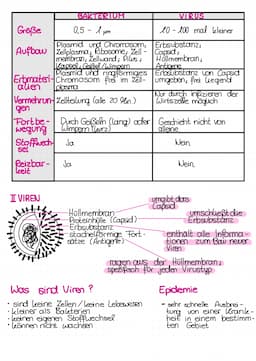 BAKTERIUM VIRUS
Größe 0,5 - 1 µm 10 - 100 mal kleiner
Aufbau Plasmid und Chromosom, Erbsubstanz;
Zellplasma; Ribosome; Zell- Capsid;
membran; Zellwand; Pilus; Hüllmembran;
Kapsel; Geißel/Wimpern Antigene
Erbmateri- Plasmid und ringförmiges Erbsubstanz von Capsid
alien Chromosom frei im Zell- umgeben, frei liegend
plasma
Vermehrun- Zellteilung (alle 20 Min.) Nur durch infizieren der
gen Wirtszelle möglich
Fortbe- Durch Geißeln (lang) oder Geschieht nicht von
wegung Wimpern (kurz) alleine
Stoffwech- Ja Nein
sel
Reizbar- Ja Nein
keit
II VIREN
umgibt das
Capsid
Hüllmembran
Proteinhülle (Capsid) umschließt die
Erbsubstanz Erbsubstanz
stachelförmige Fort- enthält alle Informa-
sätze (Antigene) tionen zum Bau neuer
Viren
ragen aus der Hüllmembran;
spezifisch für jeden Virustyp
Was sind Viren? Epidemie
• sind keine Zellen / keine Lebewesen - sehr schnelle Ausbrei-
• kleiner als Bakterien tung von einer Krank-
• keinen eigenen Stoffwechsel heit in einem bestimm-
• können nicht wachsen ten Gebiet